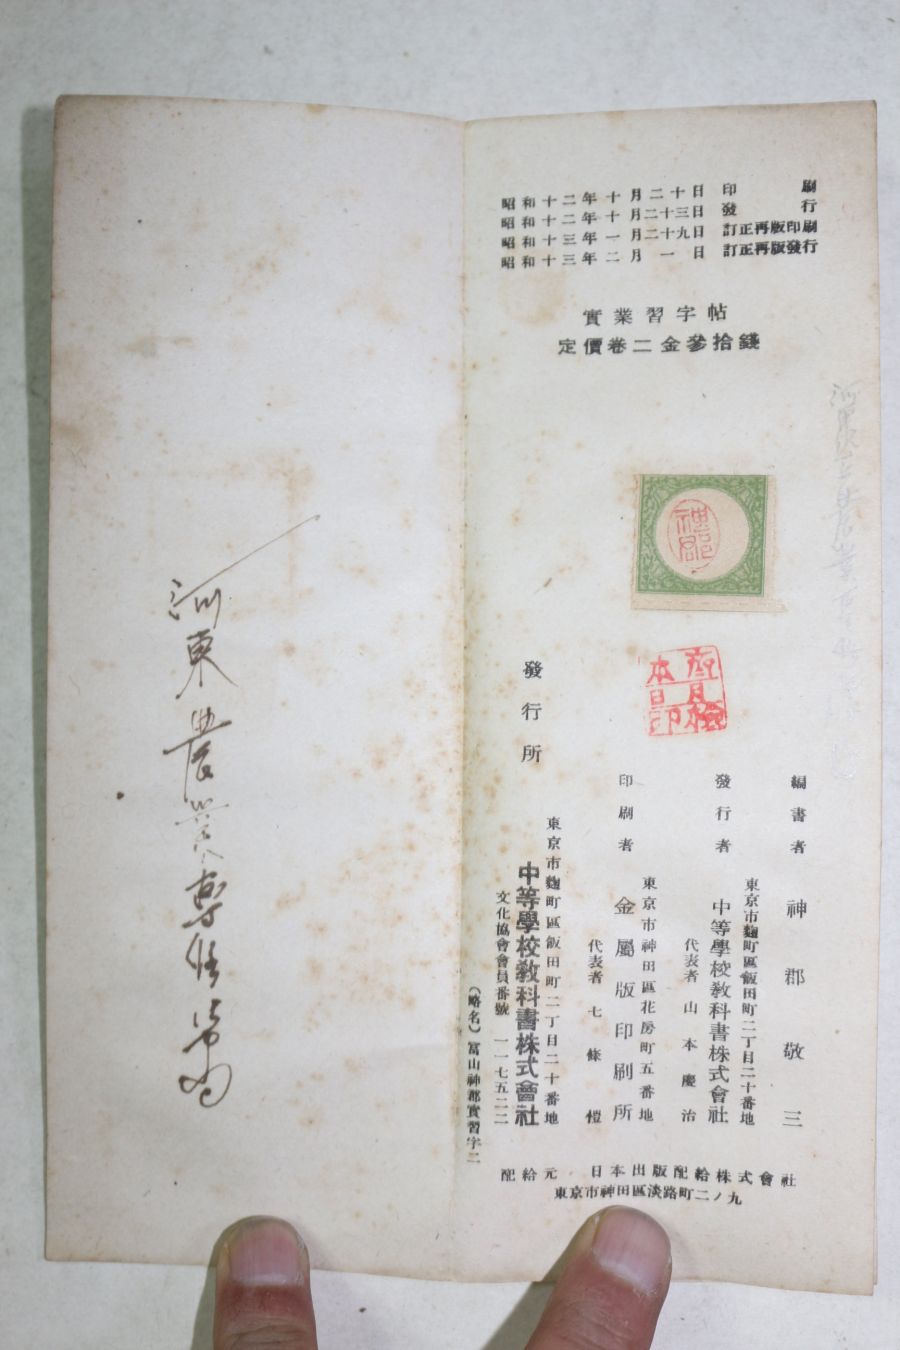 昭和十二年十月二十日 印刷
昭和十二年十月二十三日 發行
昭和十三年一月二十九日 訂正再版印刷
昭和十三年二月一日 訂正再版發行
實業習字帖
定價卷二金參拾錢
神郡
編書者 神郡敬三
東京市麴町區飯田町二丁目二十番地
發行者 中等學校敎科書株式會社
代表者 山本慶治
東京市神田區花房町五番地
印刷者 金屬版印刷所
代表者 七條愷
東京市麴町區飯田町二丁目二十番地
發行所 中等學校敎科書株式會社
文化協會會員番號 一一七五二二
(略名)冨山神郡實習字二
配給元 日本出版配給株式會社
東京市神田區淡路町二ノ九
河東農業專修